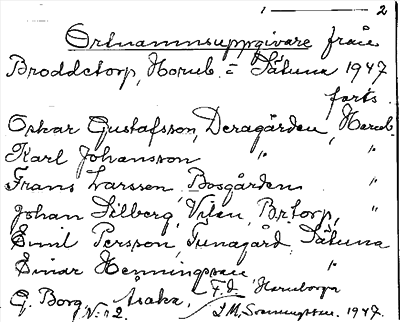 1 — 2
Ortnamnsuppgivare från
Broddetorp, Hornb. = Sätuna 1947
forts.
Oskar Gustafsson, Deragården, Hornb.
Karl Johansson " "
Frans Larsson, Bosgården "
Johan Silberg, Vilan, Br.torp, "
Emil Persson, Tunagård, Sätuna
Einar Henningsson "
G. Borg, Åsaka, F.d. Hornborga
N:r 2. 1947.